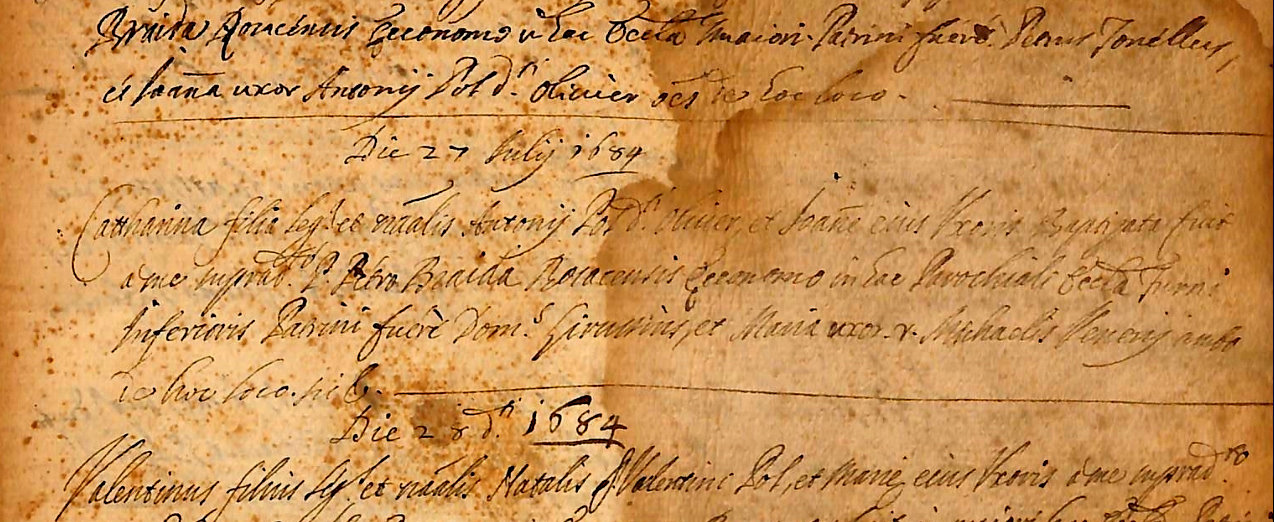 Braida Rosacensis Oeconomo in hac Eccla Maiori. Patrini fuere Petrus Tonellus,
et Joanna uxor Antonij Pol dti Olivier oēs de hoc loco.
Die 27 Julij 1684
Cattharina filia legᵃ et nālis Antonij Pol dti Olivier, et Joanne eius Uxoris Baptizata fuit
a me infradto P. Petro Braida Rosacensis Oeconomo in hac Parochiali Eccla Turni
Inferioris Patrini fuēre Dom.s et Maria uxor Michaelis Venerij ambo
de hoc loco.
Die 28 dti 1684
Valentinus filius legs et nālis Natalis q Valentini Pol, et Marie eius Uxoris a me infradto